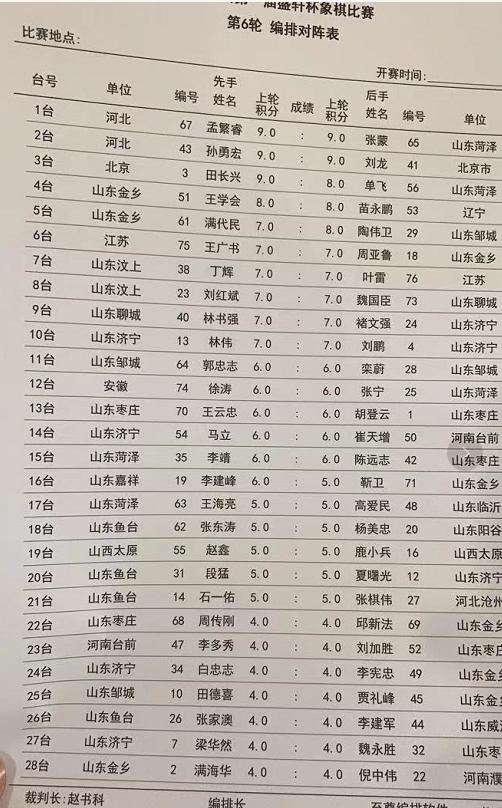 届盛轩杯象棋比赛
第6轮 编排对阵表
比赛地点：
开赛时间：
台号 单位 编号 先手姓名 上轮积分 成绩 上轮积分 后手姓名 编号 单位
1台 河北 67 孟繁睿 9.0 : 9.0 张蒙 65 山东菏泽
2台 河北 43 孙勇宏 9.0 : 9.0 刘龙 41 北京市
3台 北京 3 田长兴 9.0 : 8.0 单飞 56 山东菏泽
4台 山东金乡 51 王学会 8.0 : 8.0 苗永鹏 53 辽宁
5台 山东金乡 61 满代民 7.0 : 7.0 陶伟卫 29 山东邹城
6台 江苏 75 王广书 7.0 : 7.0 周亚鲁 18 山东金乡
7台 山东汶上 38 丁辉 7.0 : 7.0 叶雷 76 江苏
8台 山东汶上 23 刘红斌 7.0 : 7.0 魏国臣 73 山东聊城
9台 山东聊城 40 林书强 7.0 : 7.0 褚文强 24 山东济宁
10台 山东济宁 13 林伟 7.0 : 7.0 刘鹏 4 山东济宁
11台 山东邹城 64 郭忠志 6.0 : 6.0 栾蔚 28 山东邹城
12台 安徽 74 徐涛 6.0 : 6.0 张宁 25 山东菏泽
13台 山东枣庄 70 王云忠 6.0 : 6.0 胡登云 1 山东枣庄
14台 山东济宁 54 马立 6.0 : 6.0 崔天增 50 河南台前
15台 山东菏泽 35 李靖 6.0 : 6.0 陈远志 42 山东枣庄
16台 山东嘉祥 19 李建峰 6.0 : 6.0 靳卫 71 山东金乡
17台 山东菏泽 63 王海亮 5.0 : 5.0 高爱民 48 山东临沂
18台 山东鱼台 62 张东涛 5.0 : 5.0 杨美忠 20 山东阳谷
19台 山西太原 55 赵鑫 5.0 : 5.0 鹿小兵 16 山西太原
20台 山东鱼台 31 段猛 5.0 : 5.0 夏曙光 12 山东济宁
21台 山东鱼台 14 石一佑 5.0 : 5.0 张棋伟 27 河北沧州
22台 山东枣庄 68 周传刚 4.0 : 4.0 邱新法 69 山东金乡
23台 河南台前 47 李多秀 4.0 : 4.0 刘加胜 52 山东枣庄
24台 山东济宁 34 白忠志 4.0 : 4.0 李宪忠 49 山东金
25台 山东邹城 10 田德喜 4.0 : 4.0 贾礼峰 45 山东金
26台 山东鱼台 26 张家澳 4.0 : 4.0 李建军 44 山东威
27台 山东济宁 7 梁华然 4.0 : 4.0 魏永胜 32 山东枣
28台 山东金乡 2 满海华 4.0 : 4.0 倪中伟 22 河南濮
裁判长：赵书科 编排长